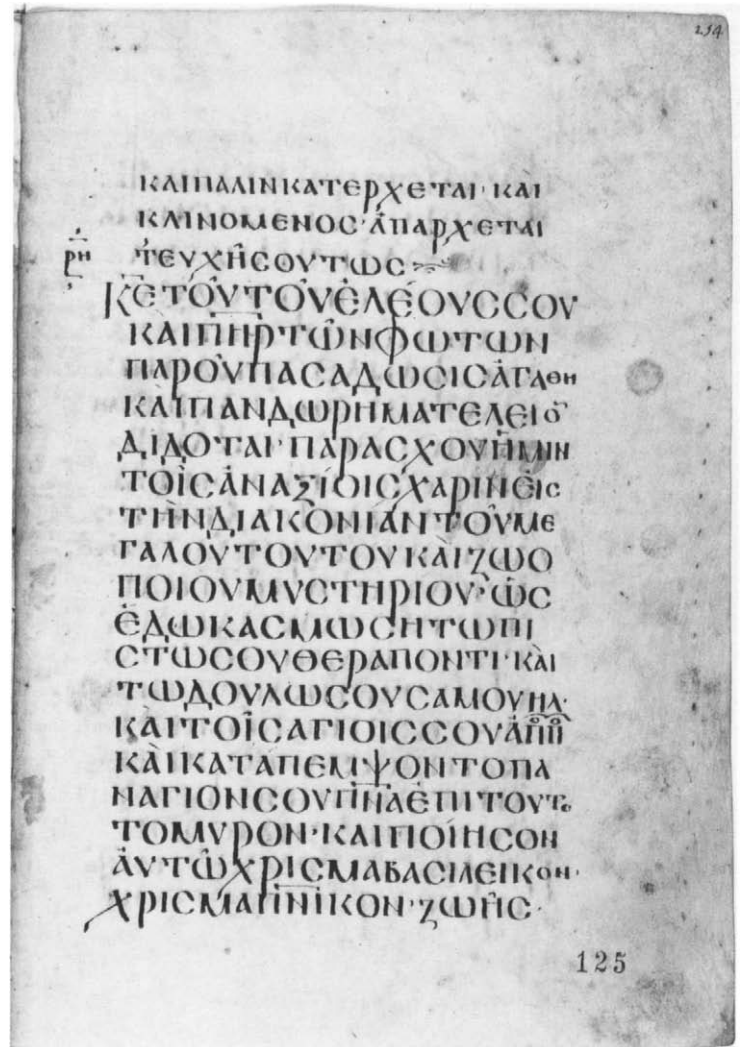 254
ΚΑΙΠΑΛΙΝΚΑΤΕΡΧΕΤΑΙ· ΚΑΙ
ΚΛΙΝΟΜΕΝΟΣ· ἈΠΑΡΧΕΤΑΙ
ΡΗ ΤΕΥΧΗ͂ΣΟΥΤΩΣ
Κ̅Ε̅ΤΟΥ͂ΤΟΥ͂ἘΛΈΟΥΣΣΟΥ
ΚΑΙΠ̅Η̅Ρ̅ΤΩ͂ΝΦΩΤΩΝ
ΠΑΡΟΥ͂ΠΑΣΑΔΩΣΙΣἈΓΑΘΗ
ΚΑῚΠΑΝΔΩΡΗΜΑΤΕΛΕΙΟ̅
ΔΙΔΟΤΑΙ· ΠΑΡΑΣΧΟΥἩΜΙΝ
ΤΟΙ͂ΣἈΝΑΞΙΟΙΣΧΑΡΙΝΕἸΣ
ΤῊΝΔΙΑΚΟΝΙΑΝΤΟΥ͂ΜΕ
ΓΑΛΟΥΤΟΥΤΟΥΚΑῚΖΩΟ
ΠΟΙΟΥΜΥΣΤΗΡΙΟΥ· ὩΣ
ἜΔΩΚΑΣΜΩΣΗΤΩΠΙ
ΣΤΩΣΟΥΘΕΡΑΠΟΝΤΙ· ΚΑῚ
ΤΩΔΟΥΛΩΣΟΥΣΑΜΟΥΗΛ·
ΚΑῚΤΟΙ͂ΣΑΓΙΟΙΣΣΟΥἈΠΠ
ΚΑῚΚΑΤΑΠΕΜΨΟΝΤΟΠΑ
ΝΑΓΙΟΝΣΟΥΠ̅Ν̅Α̅ἘΠΙΤΟΥΤΟ
ΤΟΜΥΡΟΝ· ΚΑΙΠΟΙΉΣΟΝ
ἈΥΤΩ͂ΧΡΙΣΜΑΒΑΣΙΛΕΙΚΟΝ·
ΧΡΙΣΜΑΠ̅Ν̅ΙΚΟΝ· ΖΩΗ͂Σ·
125